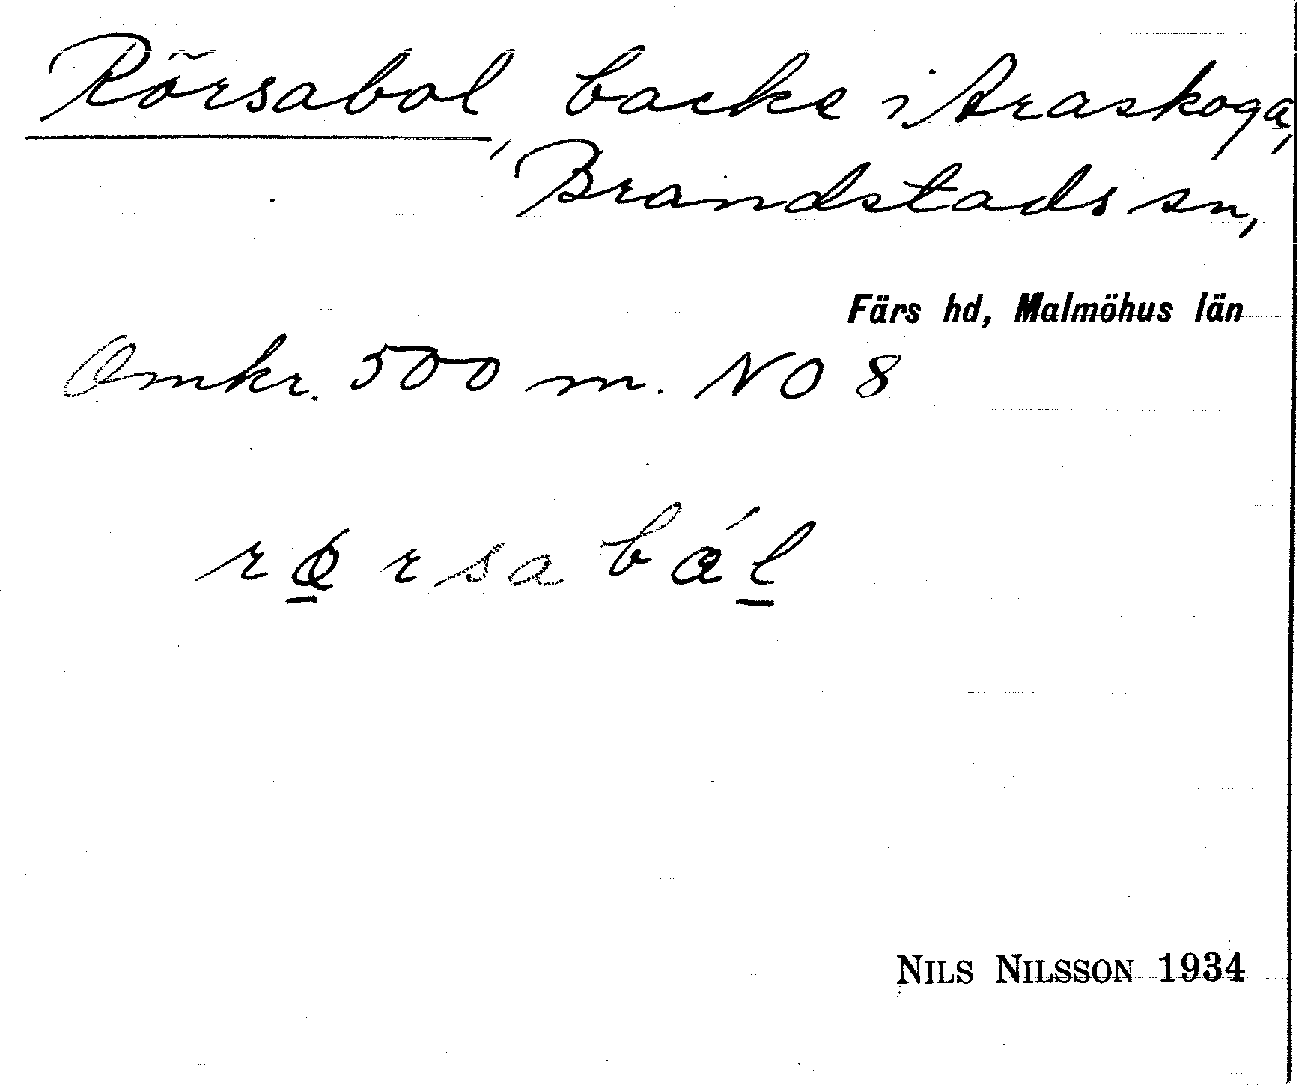 Rörsabol, backe i Araskoga,
Brandstads sn,
Färs hd, Malmöhus län
Omkr. 500 m. NO 8
rørsabál
NILS NILSSON 1934